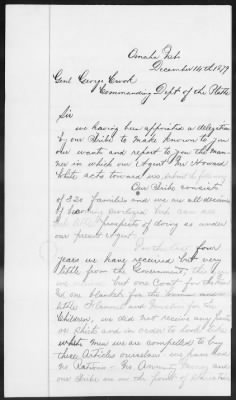 Omaha Neb
December 14th 1879
Genl George Crook
Commanding Dept of the Platte
Sir
we having been appointed a delegation
of our Tribe to make known to you
our wants and report to you the man
ner in which our Agent Mr Howard
White acts toward us, submit the following
Our Tribe consists
of 320 families and we are all desirous
of
prospects of doing as under
our present Agent.
For the last four
years we have received but very
little from the Government,
but one Coat for the
one blanket for the
little Flannel and
Children, we did not receive any
or Shirts and in order to look like
white men we are compelled to buy
these Articles ourselves we have had
no Rations - No Annuity Money and
our Tribe is on the point of starvation